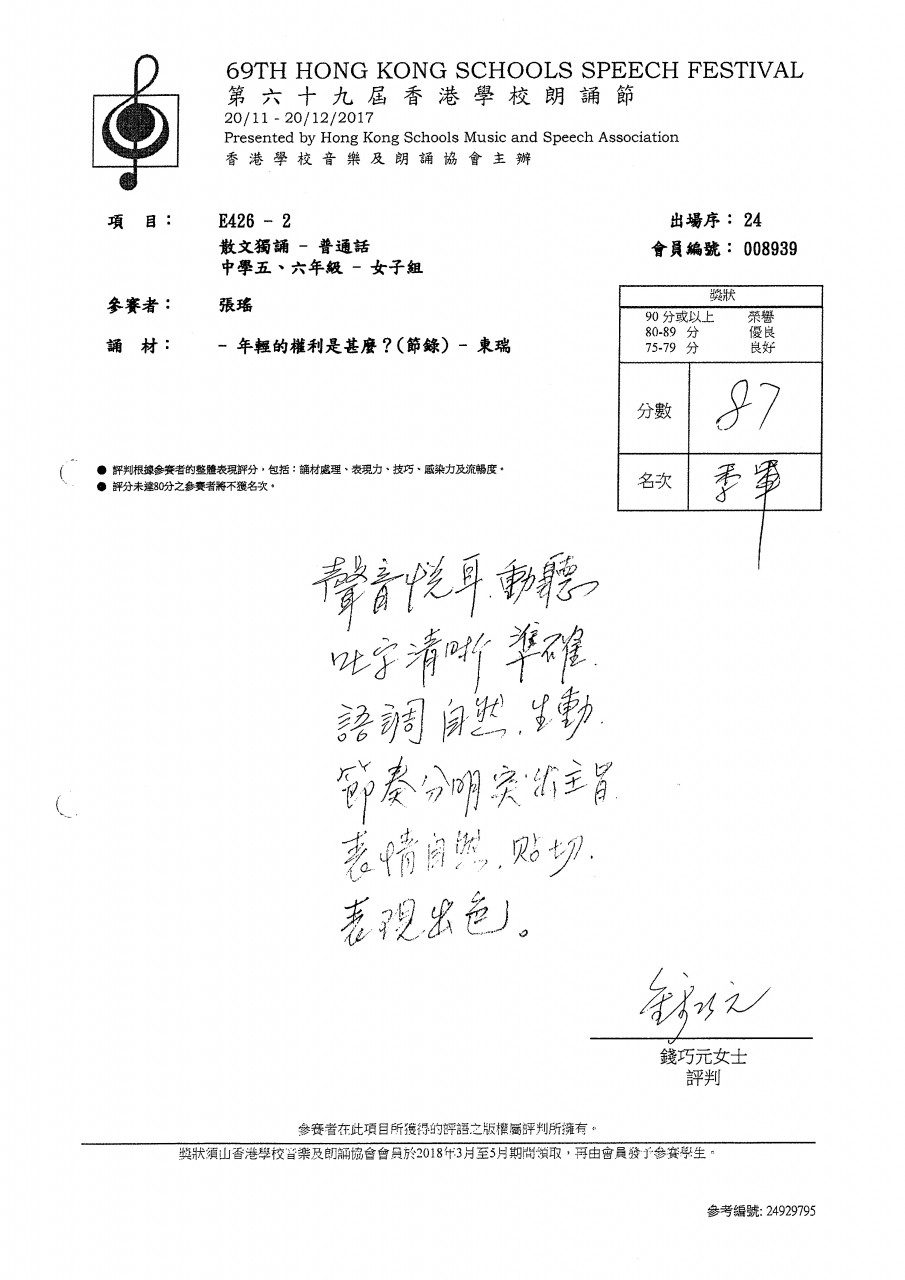 69TH HONG KONG SCHOOLS SPEECH FESTIVAL
第六十九屆香港學校朗誦節
20/11 - 20/12/2017
Presented by Hong Kong Schools Music and Speech Association
香港學校音樂及朗誦協會主辦
項 目： E426 - 2
出場序： 24
散文獨誦 - 普通話
會員編號： 008939
中學五、六年級 - 女子組
參賽者： 張瑤
誦 材： - 年輕的權利是甚麼？(節錄) - 東瑞
獎狀
90 分或以上 榮譽
80-89 分 優良
75-79 分 良好
分數 87
名次 季軍
● 評判根據參賽者的整體表現評分，包括：誦材處理、表現力、技巧、感染力及流暢度。
● 評分未達80分之參賽者將不獲名次。
聲音悅耳、動聽
吐字清晰 準確.
語調自然、生動.
節奏分明突出主旨
表情自然、貼切.
表現出色。
錢巧元
錢巧元女士
評判
參賽者在此項目所獲得的評語之版權屬評判所擁有。
獎狀須由香港學校音樂及朗誦協會會員於2018年3月至5月期間領取，再由會員發予參賽學生。
參考編號: 24929795